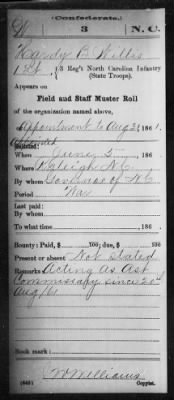 (Confederate.)
W 3 N. C.
Hardy B Willis
1st, 3 Reg't North Carolina Infantry
(State Troops).
Appears on
Field and Staff Muster Roll
of the organization named above,
for Appointment to Aug 31, 186 1.
Appointed
When June 5, 186
Where Raleigh N C
By whom Governor of N C
Period War
Last paid:
By whom
To what time , 186 .
Bounty: Paid, $ /100; due, $ /100
Present or absent Not Stated
Remarks: Acting as Ast
Commissary since 20
Aug/61
Book mark:
W Williams
(640) Copyist.